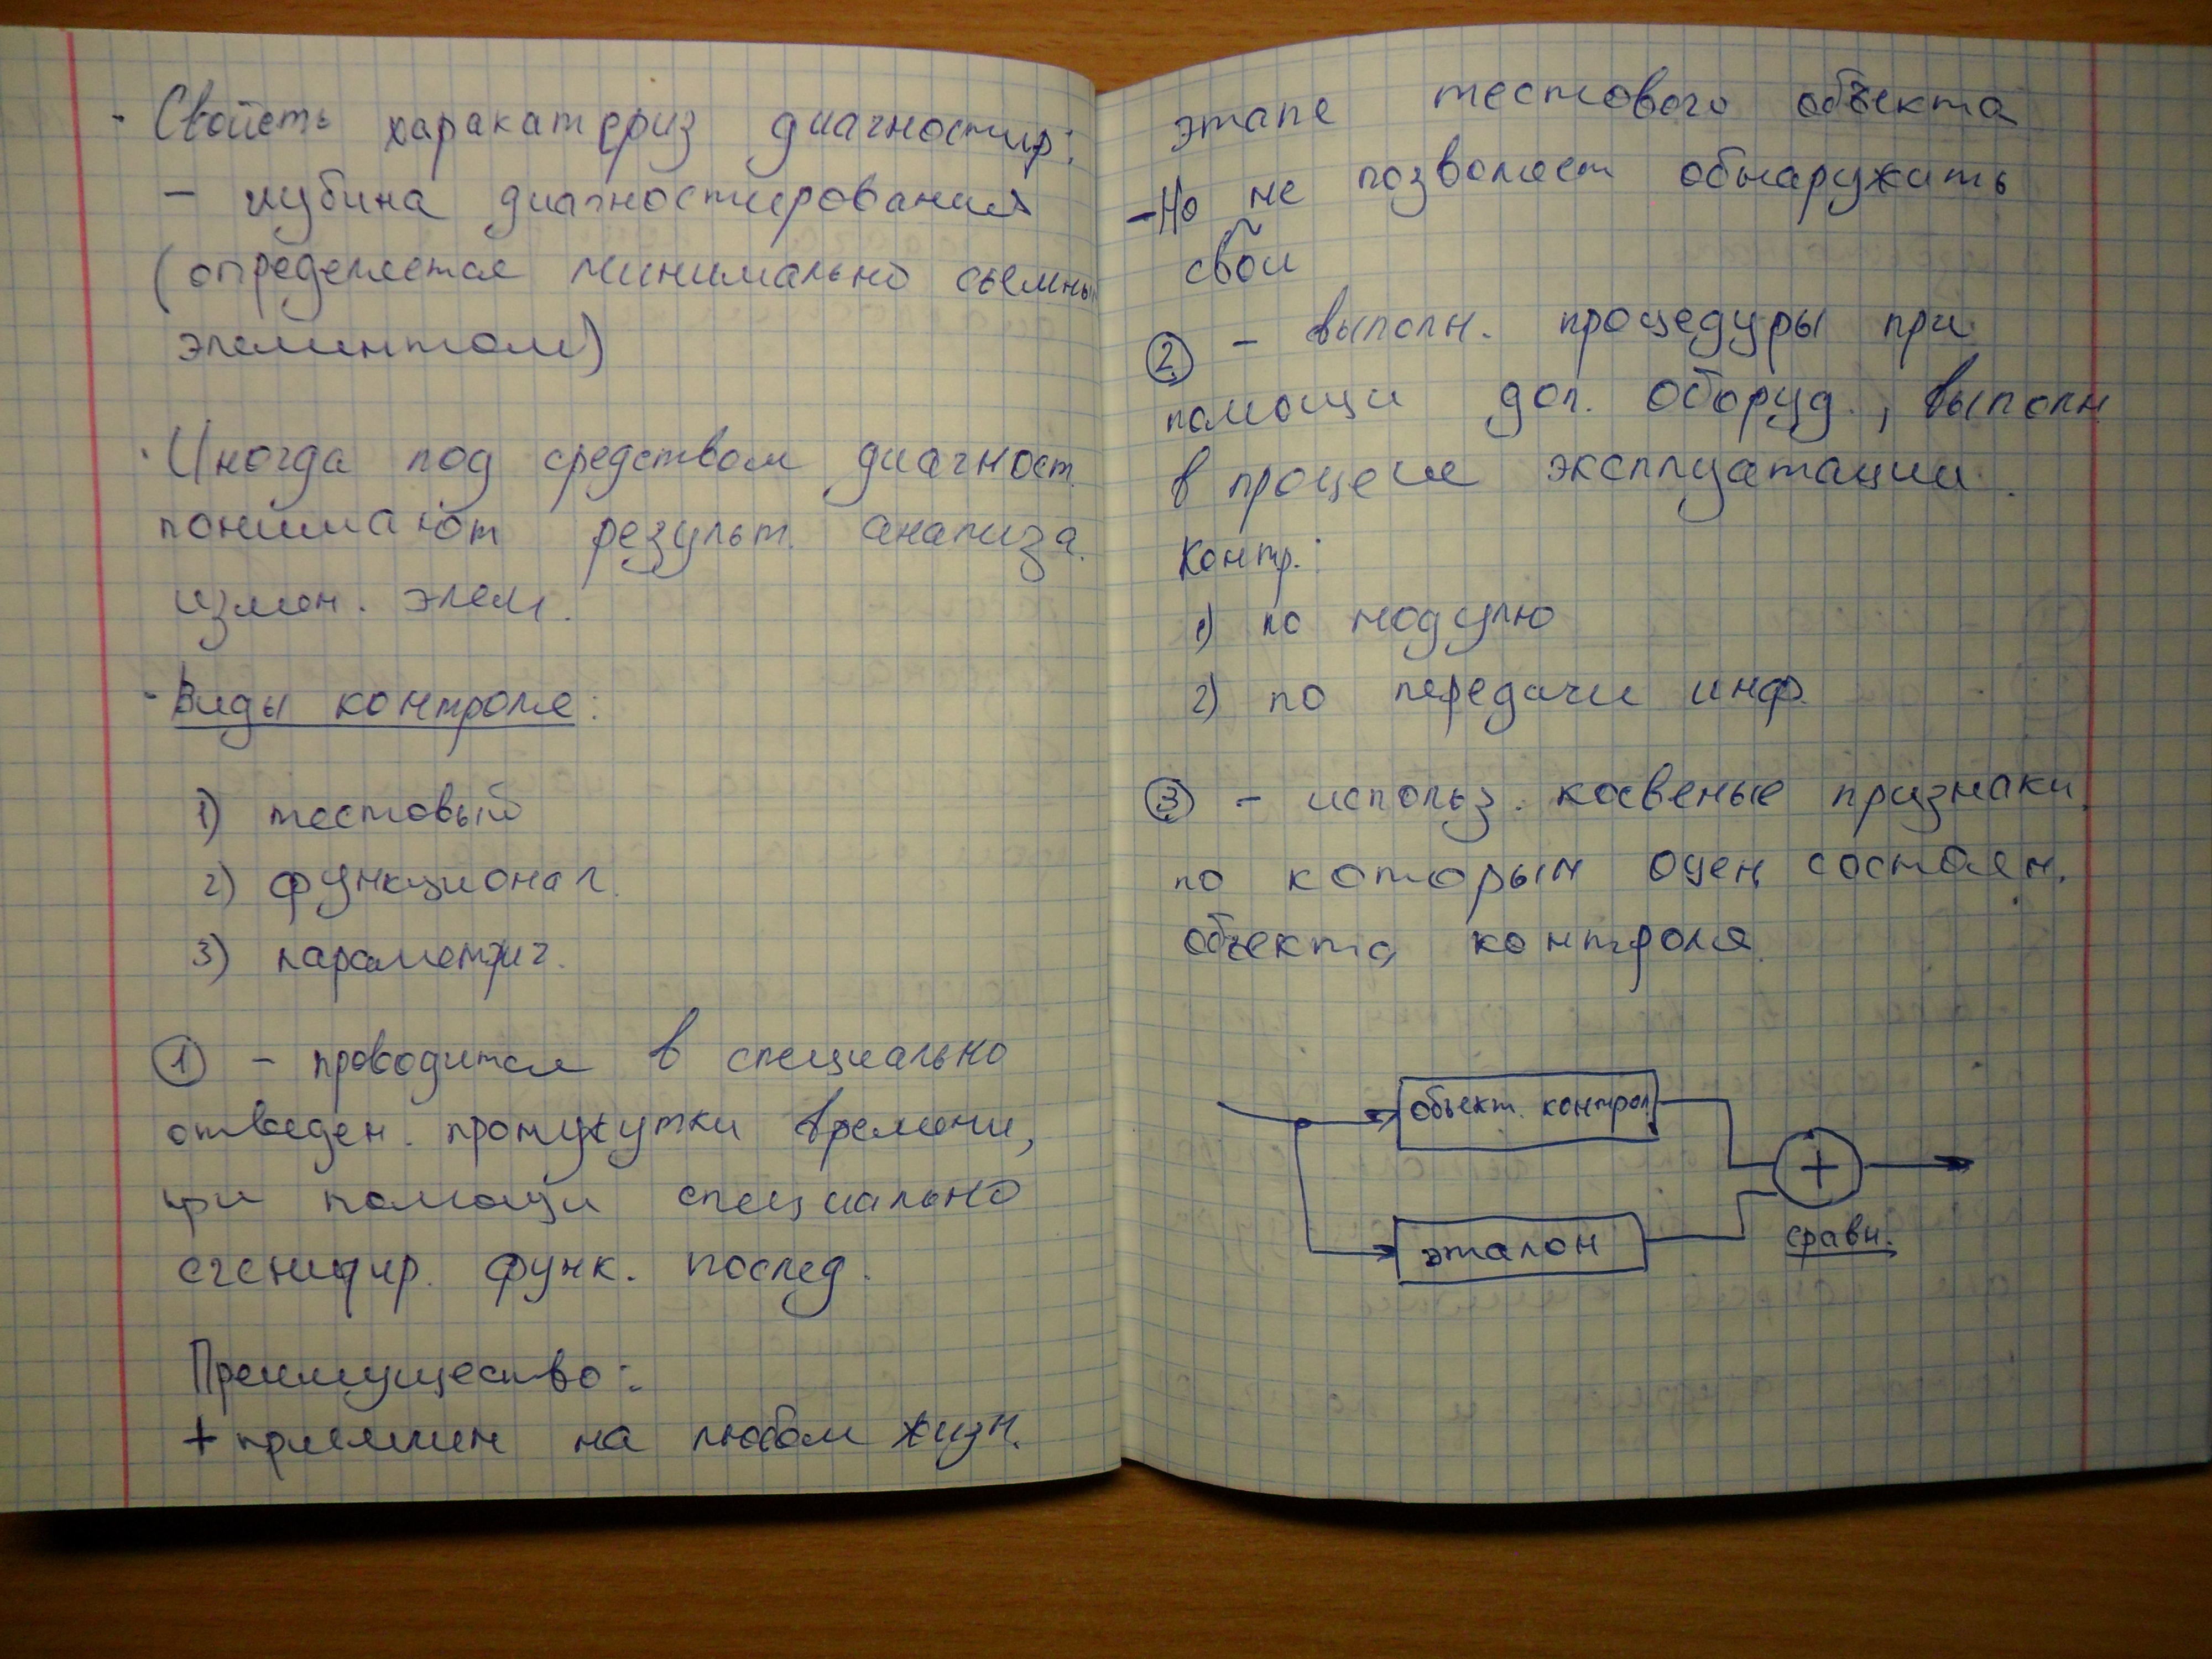 - Свойсть характериз диагностир:
- глубина диагностирования
(определяется минимально сьемным
элементом)
· Иногда под средством диагност.
понимают результ. анализа.
измен. элем.
- Виды контроля:
1) тестовый
2) функционал.
3) параметрич.
① - проводится в специально
отведен. промужутки времени,
при помощи специально
сгенирир. функ. послед.
Преимущество:
+ приемлем на любом жизн.
этапе тестового объекта
- Но не позволяет обнаружить
свои
② - выполн. процедуры при
помощи доп. оборуд., выполн
в процессе эксплуатации.
Контр.:
1) по модулю
2) по передачи инф.
③ - использ. косвеные признаки,
по которым оцен. состоян.
объекта контроля.
объект. контрол.
+
эталон
сравн.